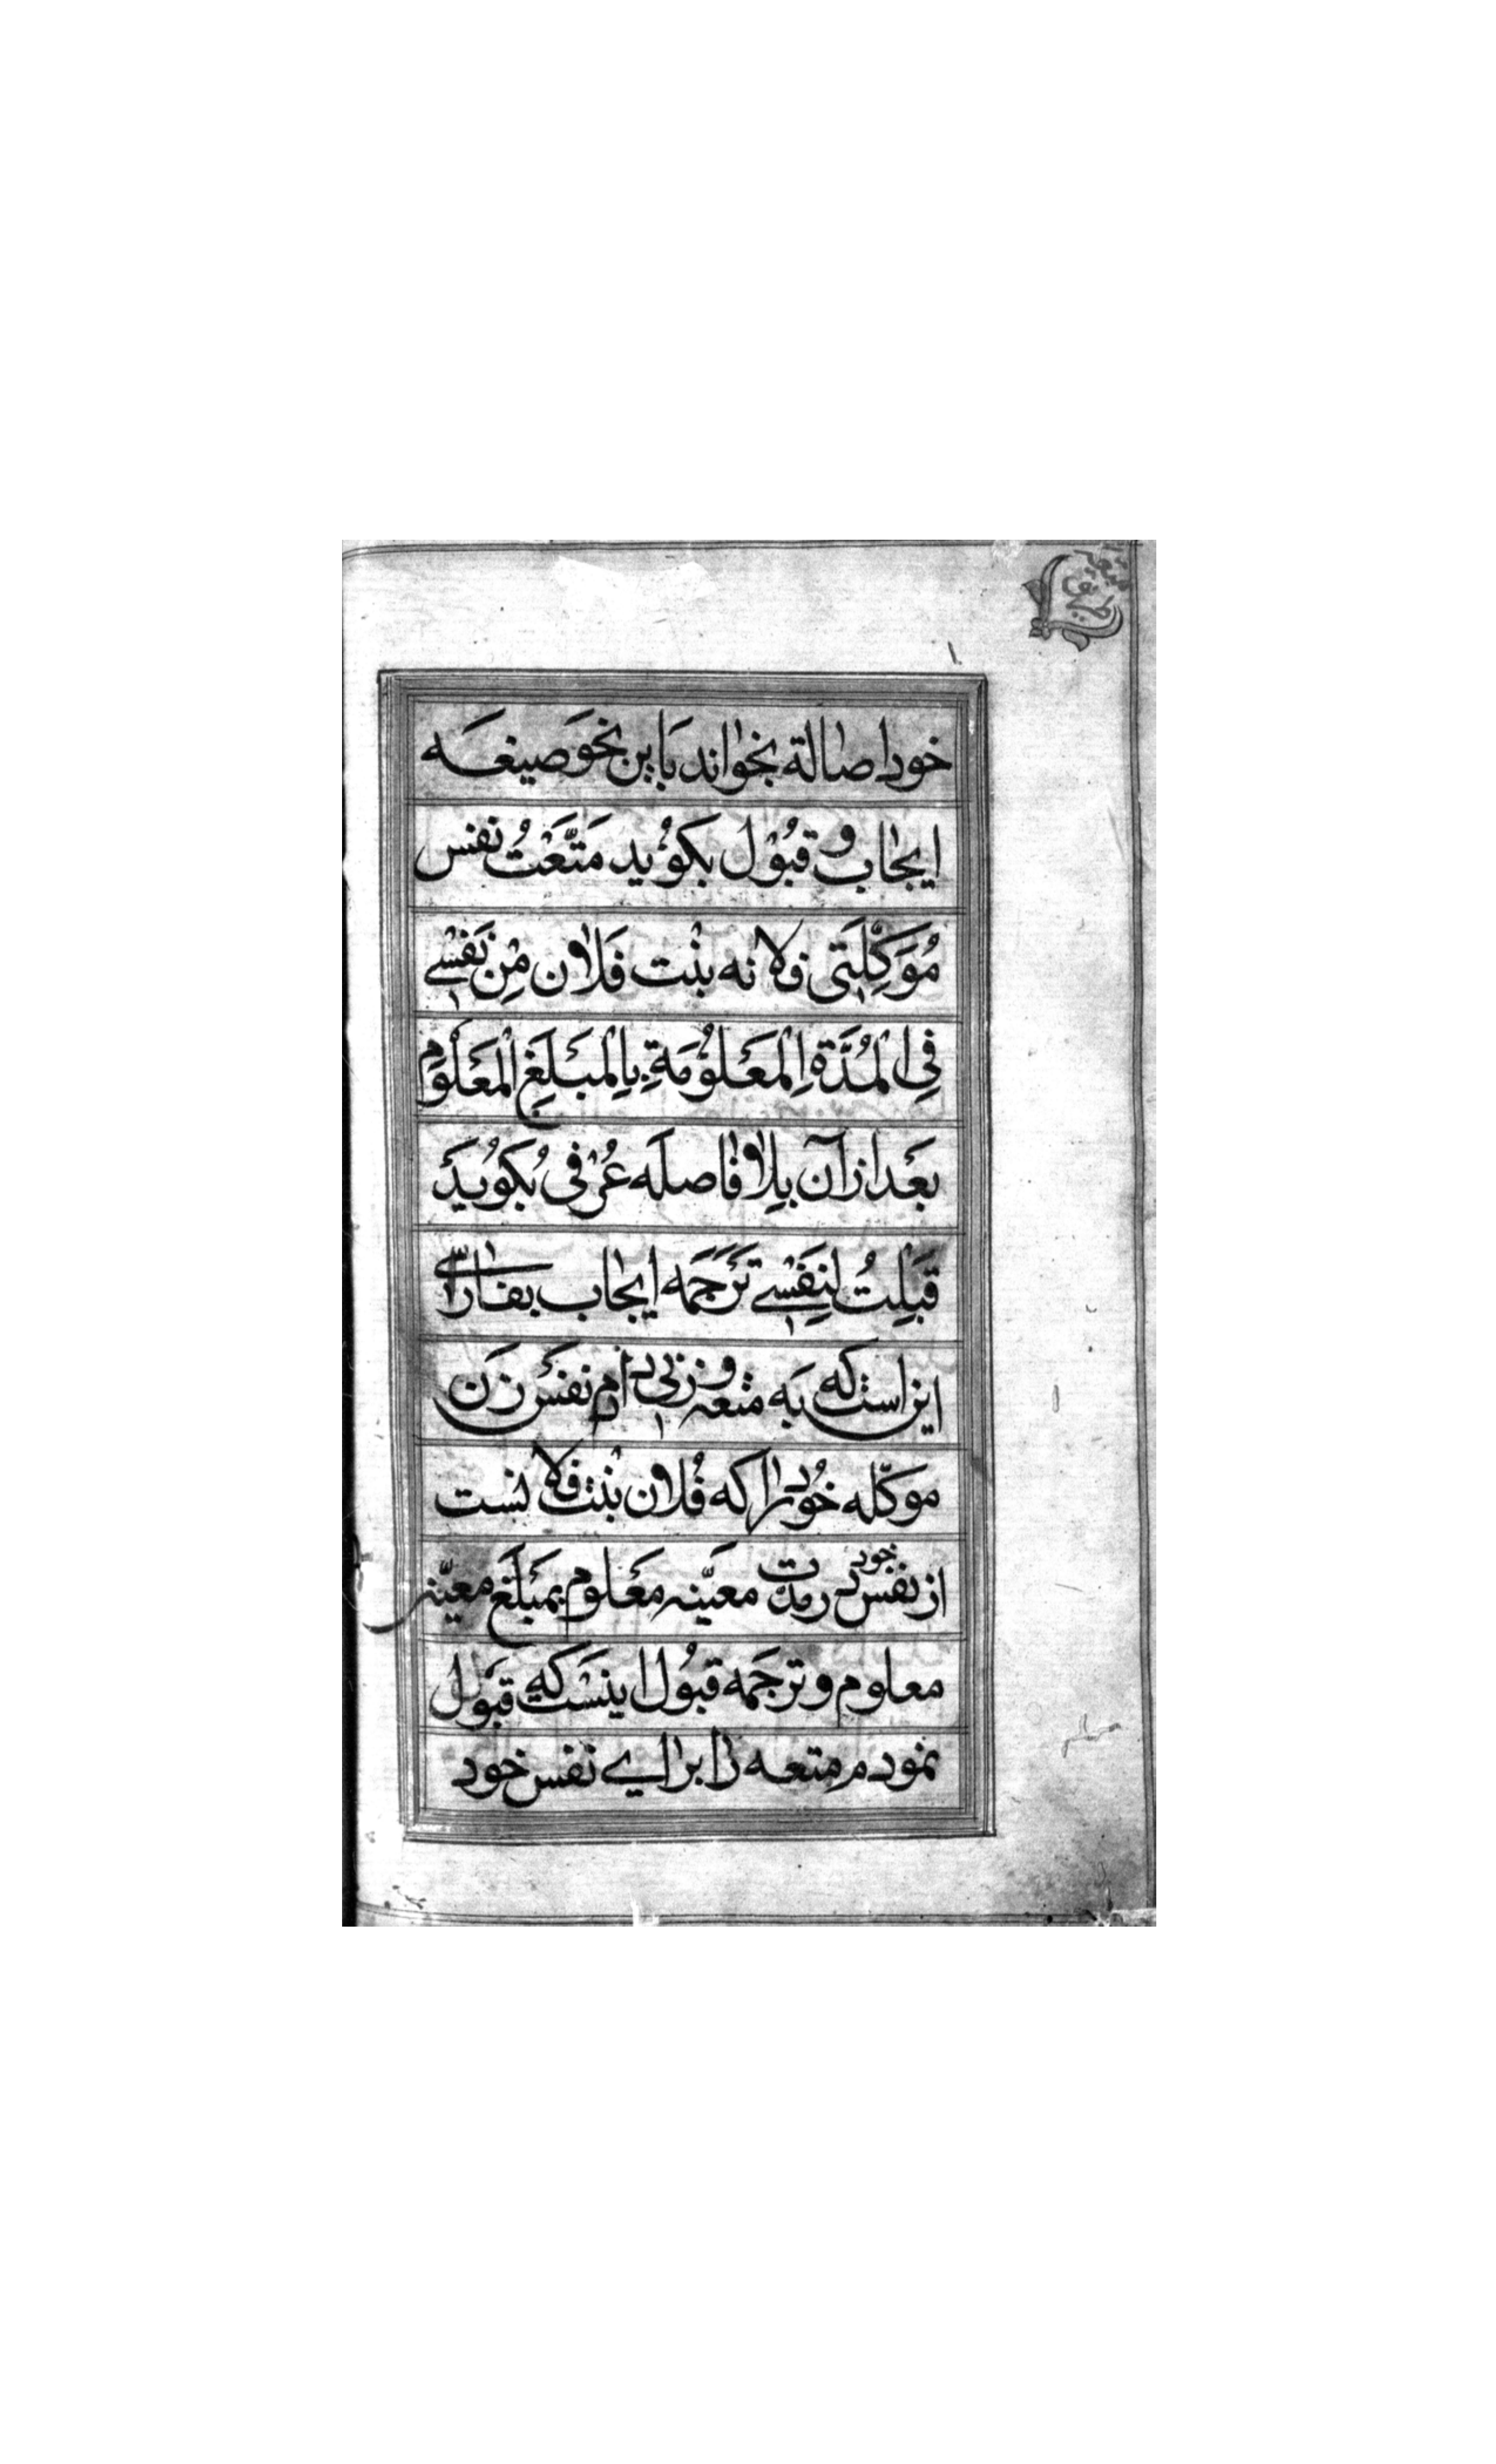 خود اصالة بخواند باین نحو صیغه
ایجاب و قبول بکوید مَتَّعْتُ نفس
مُوَکِّلَتی فلانه بنْت فَلان مِن نَفسی
فِی المُدَّةِ المَعلُومَةِ بِالمَبلَغِ المَعلُوم
بَعد از آن بلا فاصله عُرفی بکوید
قَبِلتُ لِنَفسی تَرجمَه ایجاب بفارسی
این است که به متعه و زنی دادم نفس زن
موکّله خود را که فُلان بنت فلانست
از نفس خود در مدت معیّنه معلوم بمبلغ معیّنه
معلوم و ترجمه قبُول اینست که قبول
نمودم متعه را برای نفس خود